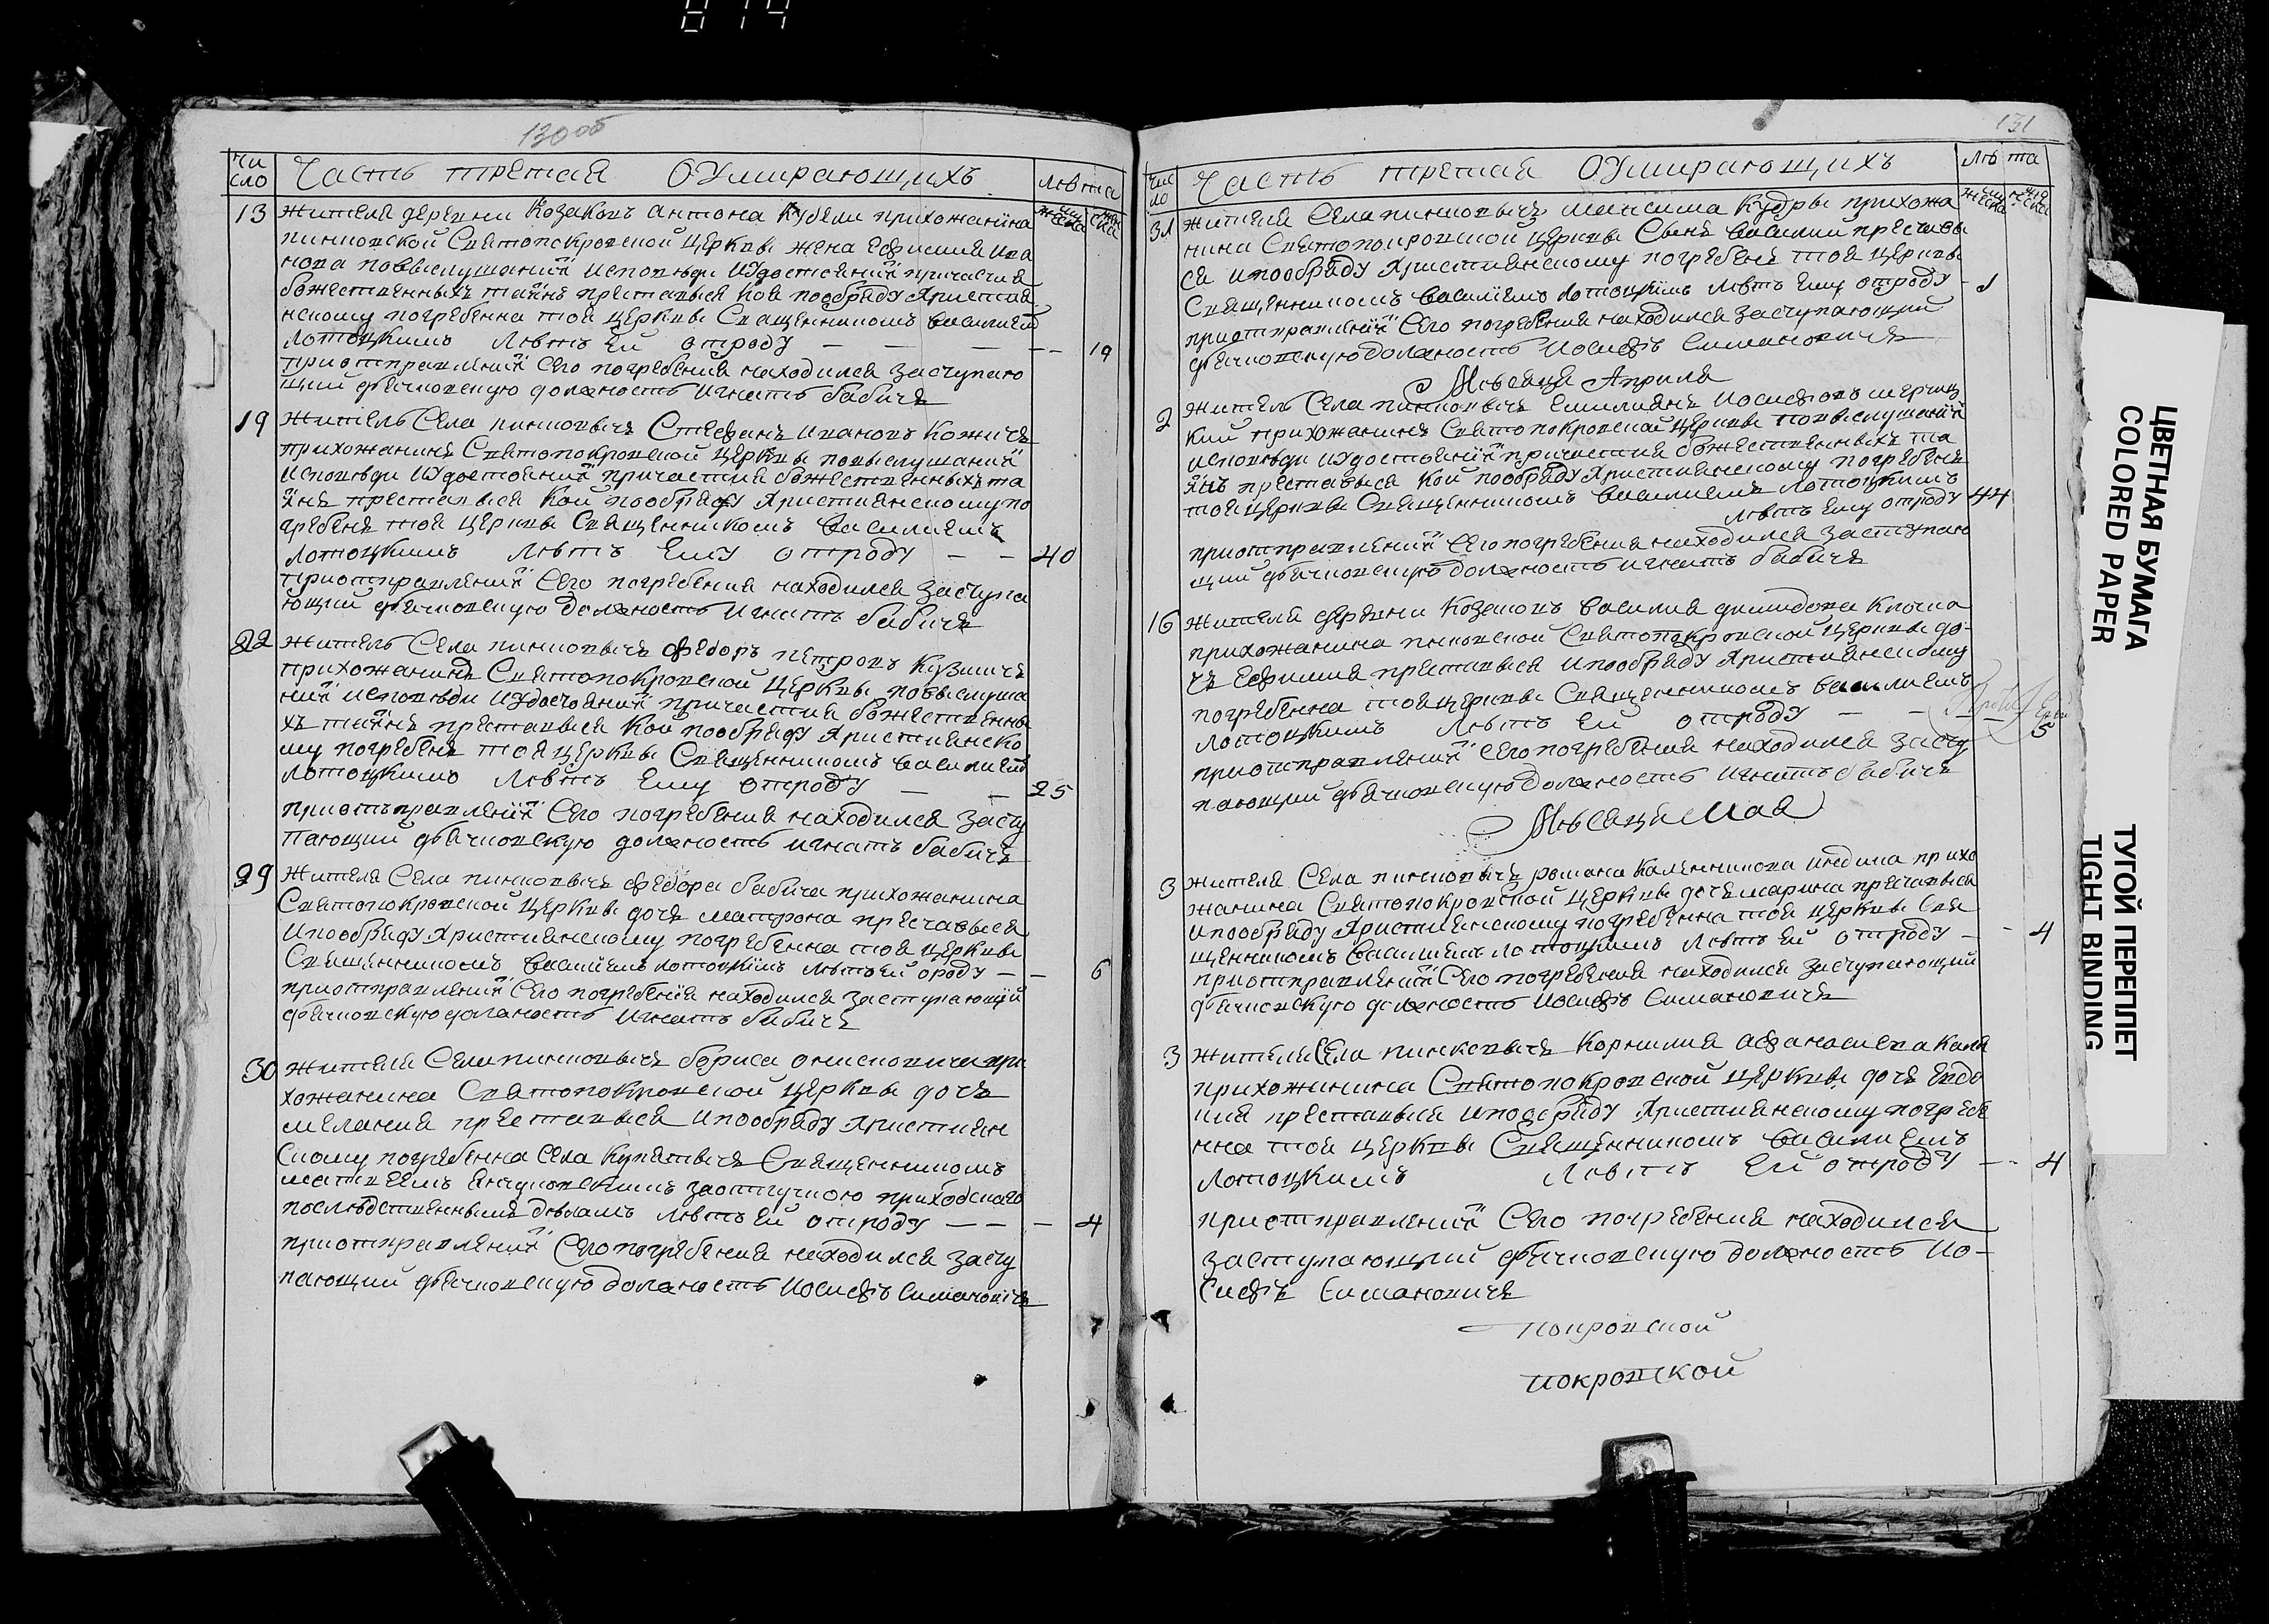 874
130 об
Чи
сло
Часть третая О Умирающихъ
Лѣта
13
жителя деревни Козаковъ антона Кубели прихожанина
пинковской Святопокровской Церкви жена Ефимия ива
нова повыслушаниїи исповѣди иУдостоениїи причастия
божественныхъ таинъ преставися Коя пообряду Христия
нскому погребенна тоя Церкви Священникомъ василием
Лотоцкимъ Лѣтъ Ей отроду — — — 19
приотправлениїи Сего погребения находился заступаю
щий дьячковскую должность Игнатъ бабичъ
19
житель Села пинковичъ Стефанъ Ивановъ Кожичъ
прихожанинъ Святопокровской Церкви повыслушаниїи
исповѣди иУдостоениїи причастия божественныхъ та
инъ преставися Кой пообряду Християнскому по
гребенъ тоя Церкви Священникомъ василиемъ
Лотоцкимъ Лѣтъ Ему отроду — — 40
приотправлениїи Сего погребения находился заступа
ющий дьячковскую должность Игнатъ бабичъ
22
житель Села пинковичъ федоръ петровъ Кузмичъ
прихожанинъ Святопокровской Церкви повыслуша
ниїи исповѣди иУдостоениїи причастия божественны
хъ таинъ преставися Кой пообряду Християнско
му погребенъ тоя Церкви Священникомъ василием
Лотоцкимъ Лѣтъ Ему отроду — — 25
приотъправлениїи Сего погребения находился засту
пающий дьячковскую должность игнатъ бабичъ
29
Жителя Села пинковичъ федора бабича прихожанина
Святопокровской Церкви дочь матрона преставися
Ипообряду Християнскому погребенна тоя Церкви
Священникомъ василїемъ лотоцкїмъ лѣтъ ей ороду — — 6
приотправлениїи Сего погребенїя находился заступающїй
дьячковскую должность Игнатъ бабичъ
30
жителя Села пинковичъ бориса онисковича при
хожанина Святопокровской Церкви дочь
мелания преставися ипообряду Християн
Скому погребенна Села Купятичъ Священникомъ
матвеемъ заотлучкою приходскаго
послѣдственнымъ дѣламъ лѣтъ ей отроду — — — 4
приотправлениїи Сего погребения находился засту
пающий дьячковскую должность Иосифъ Симановичъ
131
Чис
ло
Часть третая О Умирающихъ
Лѣ та
31
жителя Села пинковичъ максима Кудры прихожа
нина Святопокровской Церкви Сынъ василий престави
ся ипообряду Християнскому погребенъ тоя Церкви
Священникомъ василїемъ лотоцкїмъ лѣтъ Ему отроду — 1
приотправлениїи Сего погребения находился заступающий
дьячковскую должность Иосифъ Симановичъ
Мѣсяца Априля
2
житель Села пинковичъ Емилиянъ Иосифовъ
кий прихожанинъ Святопокровской Церкви повыслушаниїи
исповѣди иУдостоениїи причастия божественныхъ та
инъ преставися Кой пообряду Християнскому погребенъ
тоя Церкви Священникомъ василиемъ лотоцкимъ
лѣтъ Ему отроду 44
приотправлениїи Сего погребения находился заступаю
щий дьячковскую должность игнатъ бабичъ
16
жителя деревни Козаковъ василия димидова
прихожанина пинковской Святопокровской Церкви до-
чъ Ефимия преставися ипообряду Християнскому
погребенна тоя церкви Священникомъ василиемъ
лотоцкимъ Лѣтъ Ей отроду — — — 5
приотправлениїи Сего погребения находился засту
пающий дьячковскую должность игнатъ бабичъ
Мѣсяца Мая
3
жителя Села пинковичъ романа прихо
жанина Святопокровской Церкви дочъ марина преставися
ипообряду Християнскому погребенна тоя Церкви Свя
щенникомъ василиемъ лотоцкимъ Лѣтъ Ей отроду — — 4
приотправлениїи Сего погребения находился заступающий
дьячковскую должность Иосифъ Симановичъ
3
жителя Села пинковичъ Корнилия афанасиева
прихожанина Святопокровской Церкви дочъ Евдо
кия преставися ипообряду Християнскому погребе
нна тоя Церкви Священникомъ василиемъ
лотоцкимъ Лѣтъ Ей отроду — — 4
приотправлениїи Сего погребения находился
заступающий дьячковскую должность Ио-
Сифъ Симановичъ
покровской
покровской
ЦВЕТНАЯ БУМАГА
COLORED PAPER
ТУГОЙ ПЕРЕПЛЕТ
TIGHT BINDING